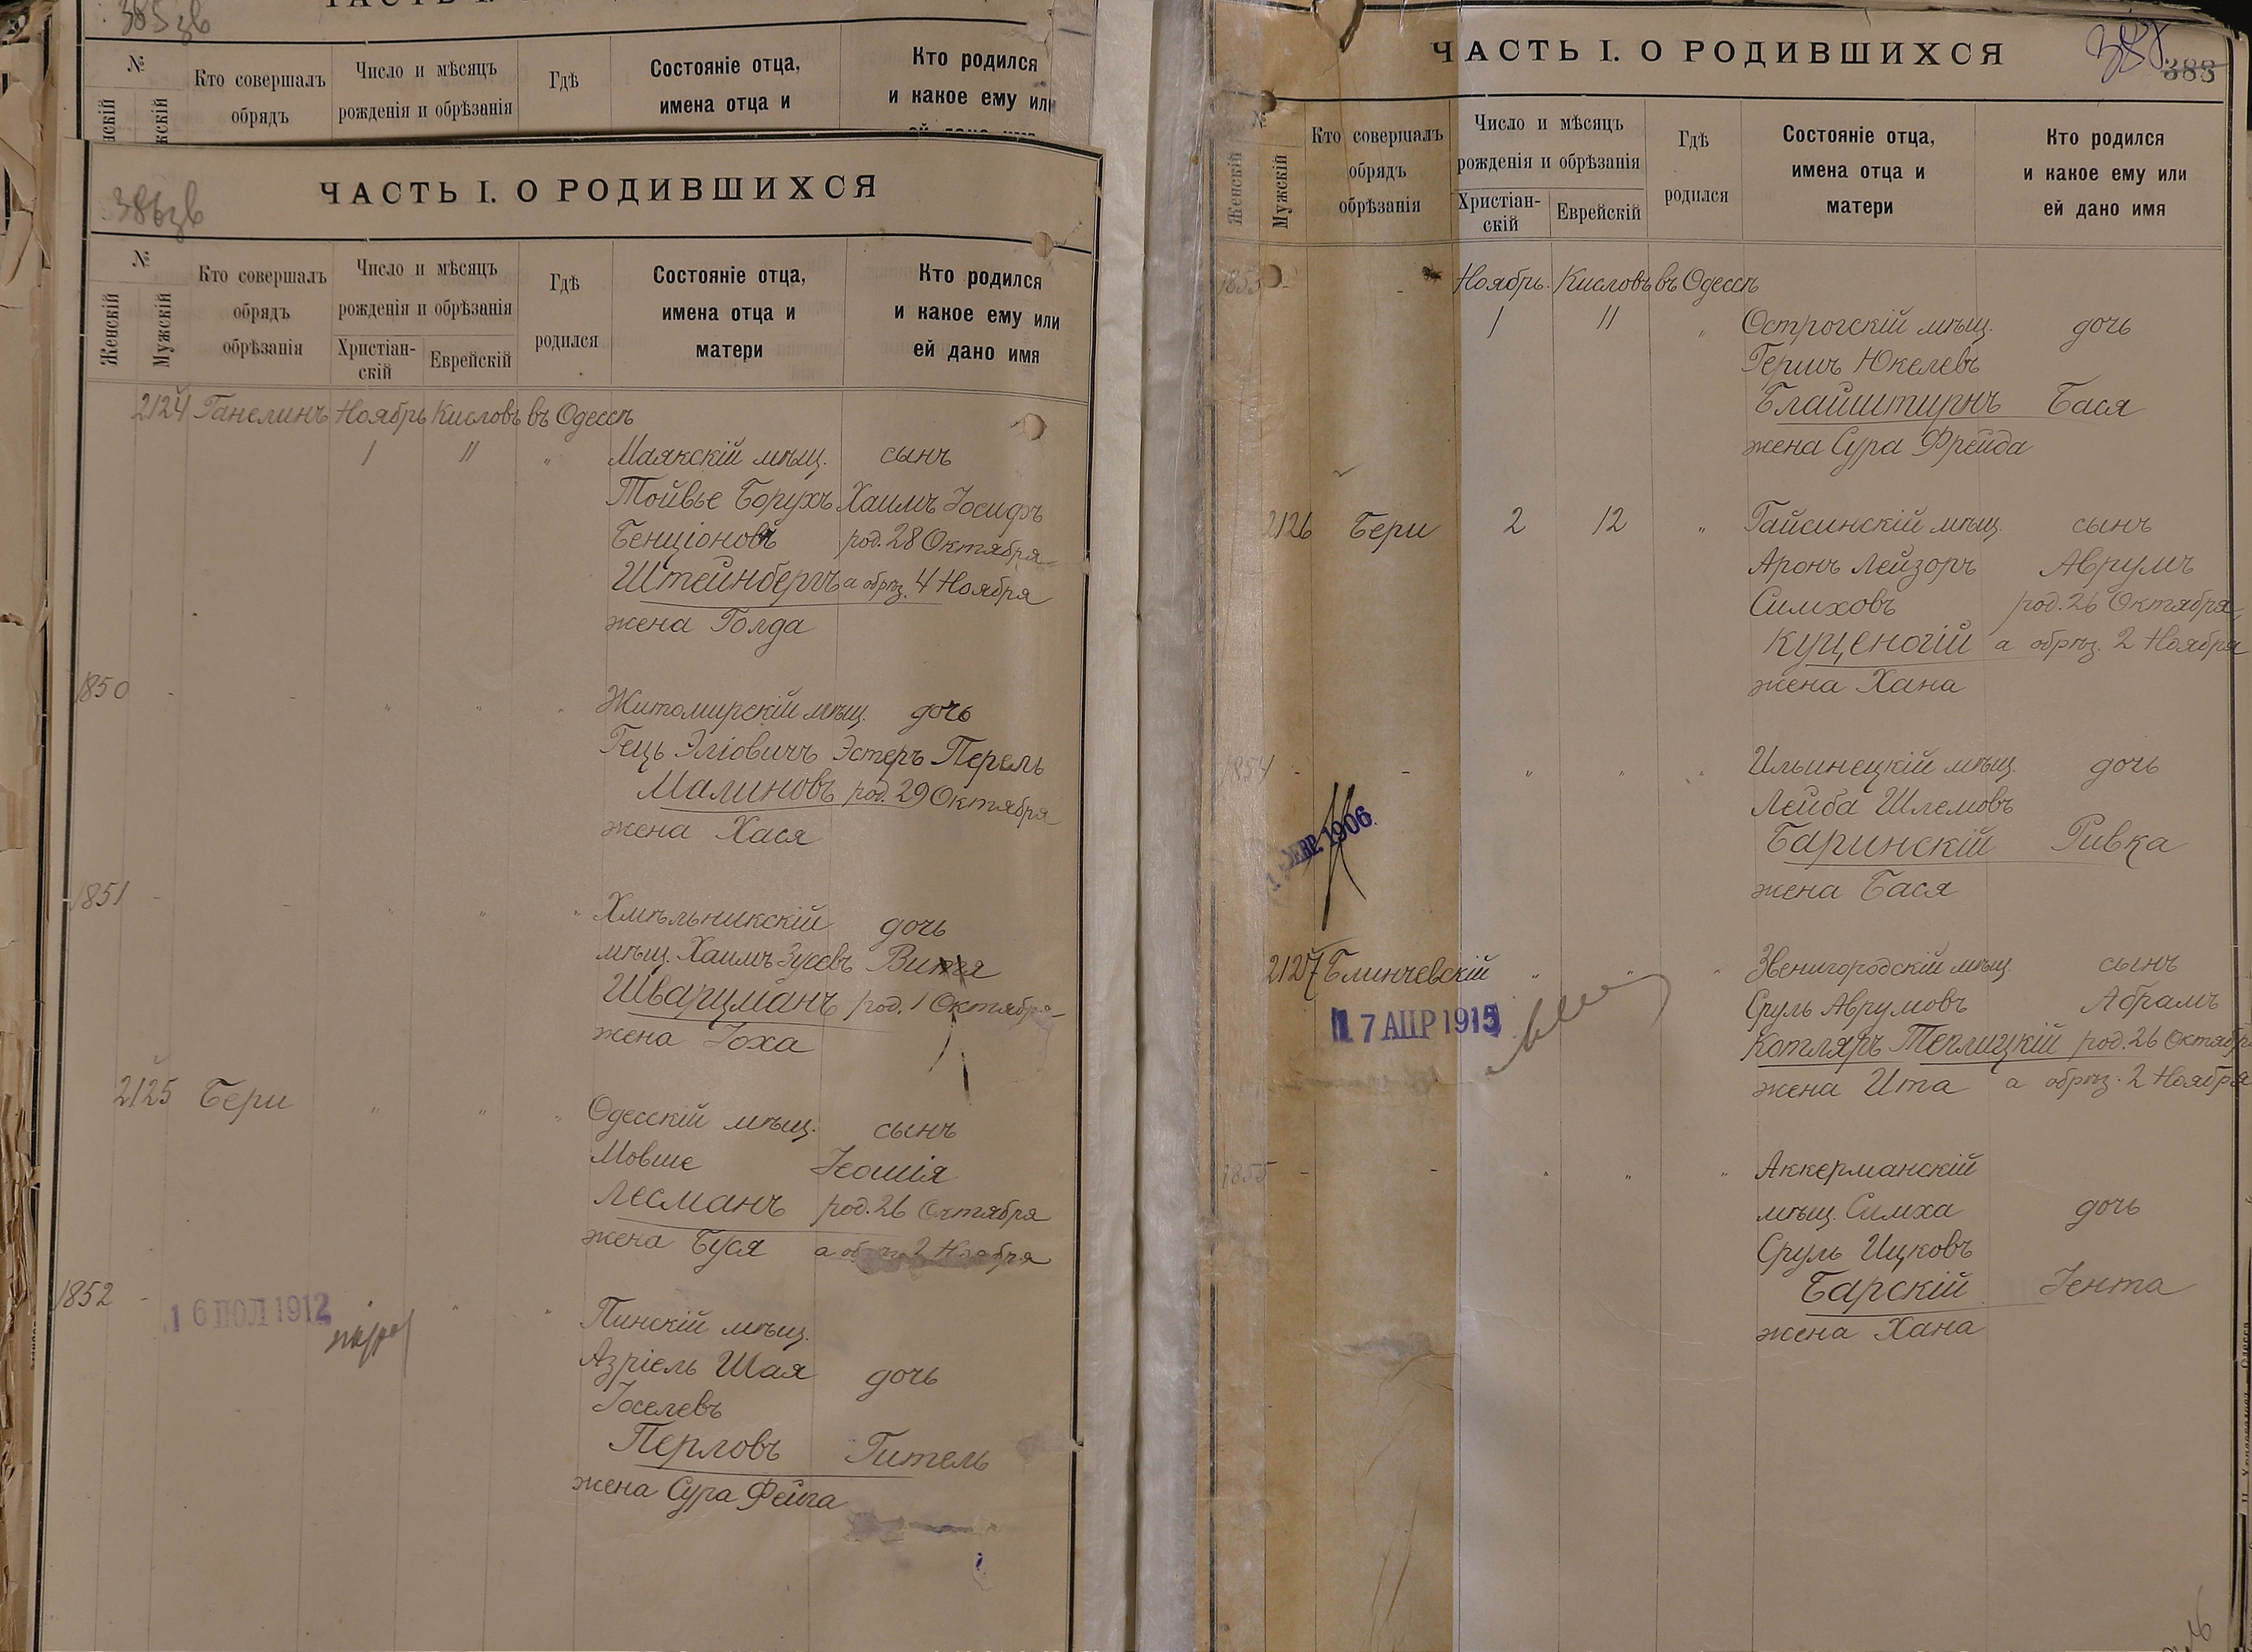 385зв
№
Кто совершалъ
обрядъ
Число и мѣсяцъ
рожденія и обрѣзанія
Гдѣ
Состояніе отца,
имена отца и
Кто родился
и какое ему или
386зв
ЧАСТЬ I. О РОДИВШИХСЯ
№
Женскій
Мужскій
Кто совершалъ
обрядъ
обрѣзанія
Число и мѣсяцъ
рожденія и обрѣзанія
Христіан-
скій
Еврейскій
Гдѣ
родился
Состояніе отца,
имена отца и
матери
Кто родился
и какое ему или
ей дано имя
2124 Ганелинъ Ноябрь Кисловъ въ Одессѣ
1 11 " Маякскій мѣщ. сынъ
Тойвье Борухъ Хаимъ Іосифъ
Бенціоновъ род. 28 Октября
Штейнбергъ а обрѣз. 4 Ноября
жена Голда
1850 - - " " " Житомирскій мѣщ. дочь
Гець Эліовичъ Эстеръ Перель
Малиновъ род. 29 Октября
жена Хася
1851 - - " " " Хмѣльникскій дочь
мѣщ. Хаимъ Зусевъ
Шварцманъ род. 1 Октября
жена Іоха
2125 Бери " " " Одесскій мѣщ. сынъ
Мовше Іеошія
Лесманъ род. 26 Октября
жена Буся а обрѣз. 2 Ноября
1852 - " " Пинскій мѣщ.
16 ІЮЛ 1912
Азріель Шая дочь
Іоселевъ
Перловъ Гитель
жена Сура Фейга
ЧАСТЬ I. О РОДИВШИХСЯ
383
№
Женскій
Мужскій
Кто совершалъ
обрядъ
обрѣзанія
Число и мѣсяцъ
рожденія и обрѣзанія
Христіан-
скій
Еврейскій
Гдѣ
родился
Состояніе отца,
имена отца и
матери
Кто родился
и какое ему или
ей дано имя
1853 - - Ноябрь Кисловъ въ Одессѣ
1 11 " Острогскій мѣщ. дочь
Гершъ Юкелевъ
Блайштирнъ Бася
жена Сура Фрейда
2126 Бери 2 12 " Гайсинскій мѣщ. сынъ
Аронъ Лейзоръ Аврумъ
Симховъ род. 26 Октября
Куценогій а обрѣз. 2 Ноября
жена Хана
1854 - - " " " Ильинецкій мѣщ. дочь
Лейба Шлемовъ
Баринскій Ривка
жена Бася
ФЕВР. 1906.
2127 Блинчевскій " " " Звенигородскій мѣщ. сынъ
Сруль Аврумовъ Абрамъ
17 АПР 1915
Котляръ Теплицкій род. 26 Октября
жена Ита а обрѣз. 2 Ноября
1855 - - " " " Аккерманскій
мѣщ. Симха дочь
Сруль Ицковъ
Барскій Іента
жена Хана